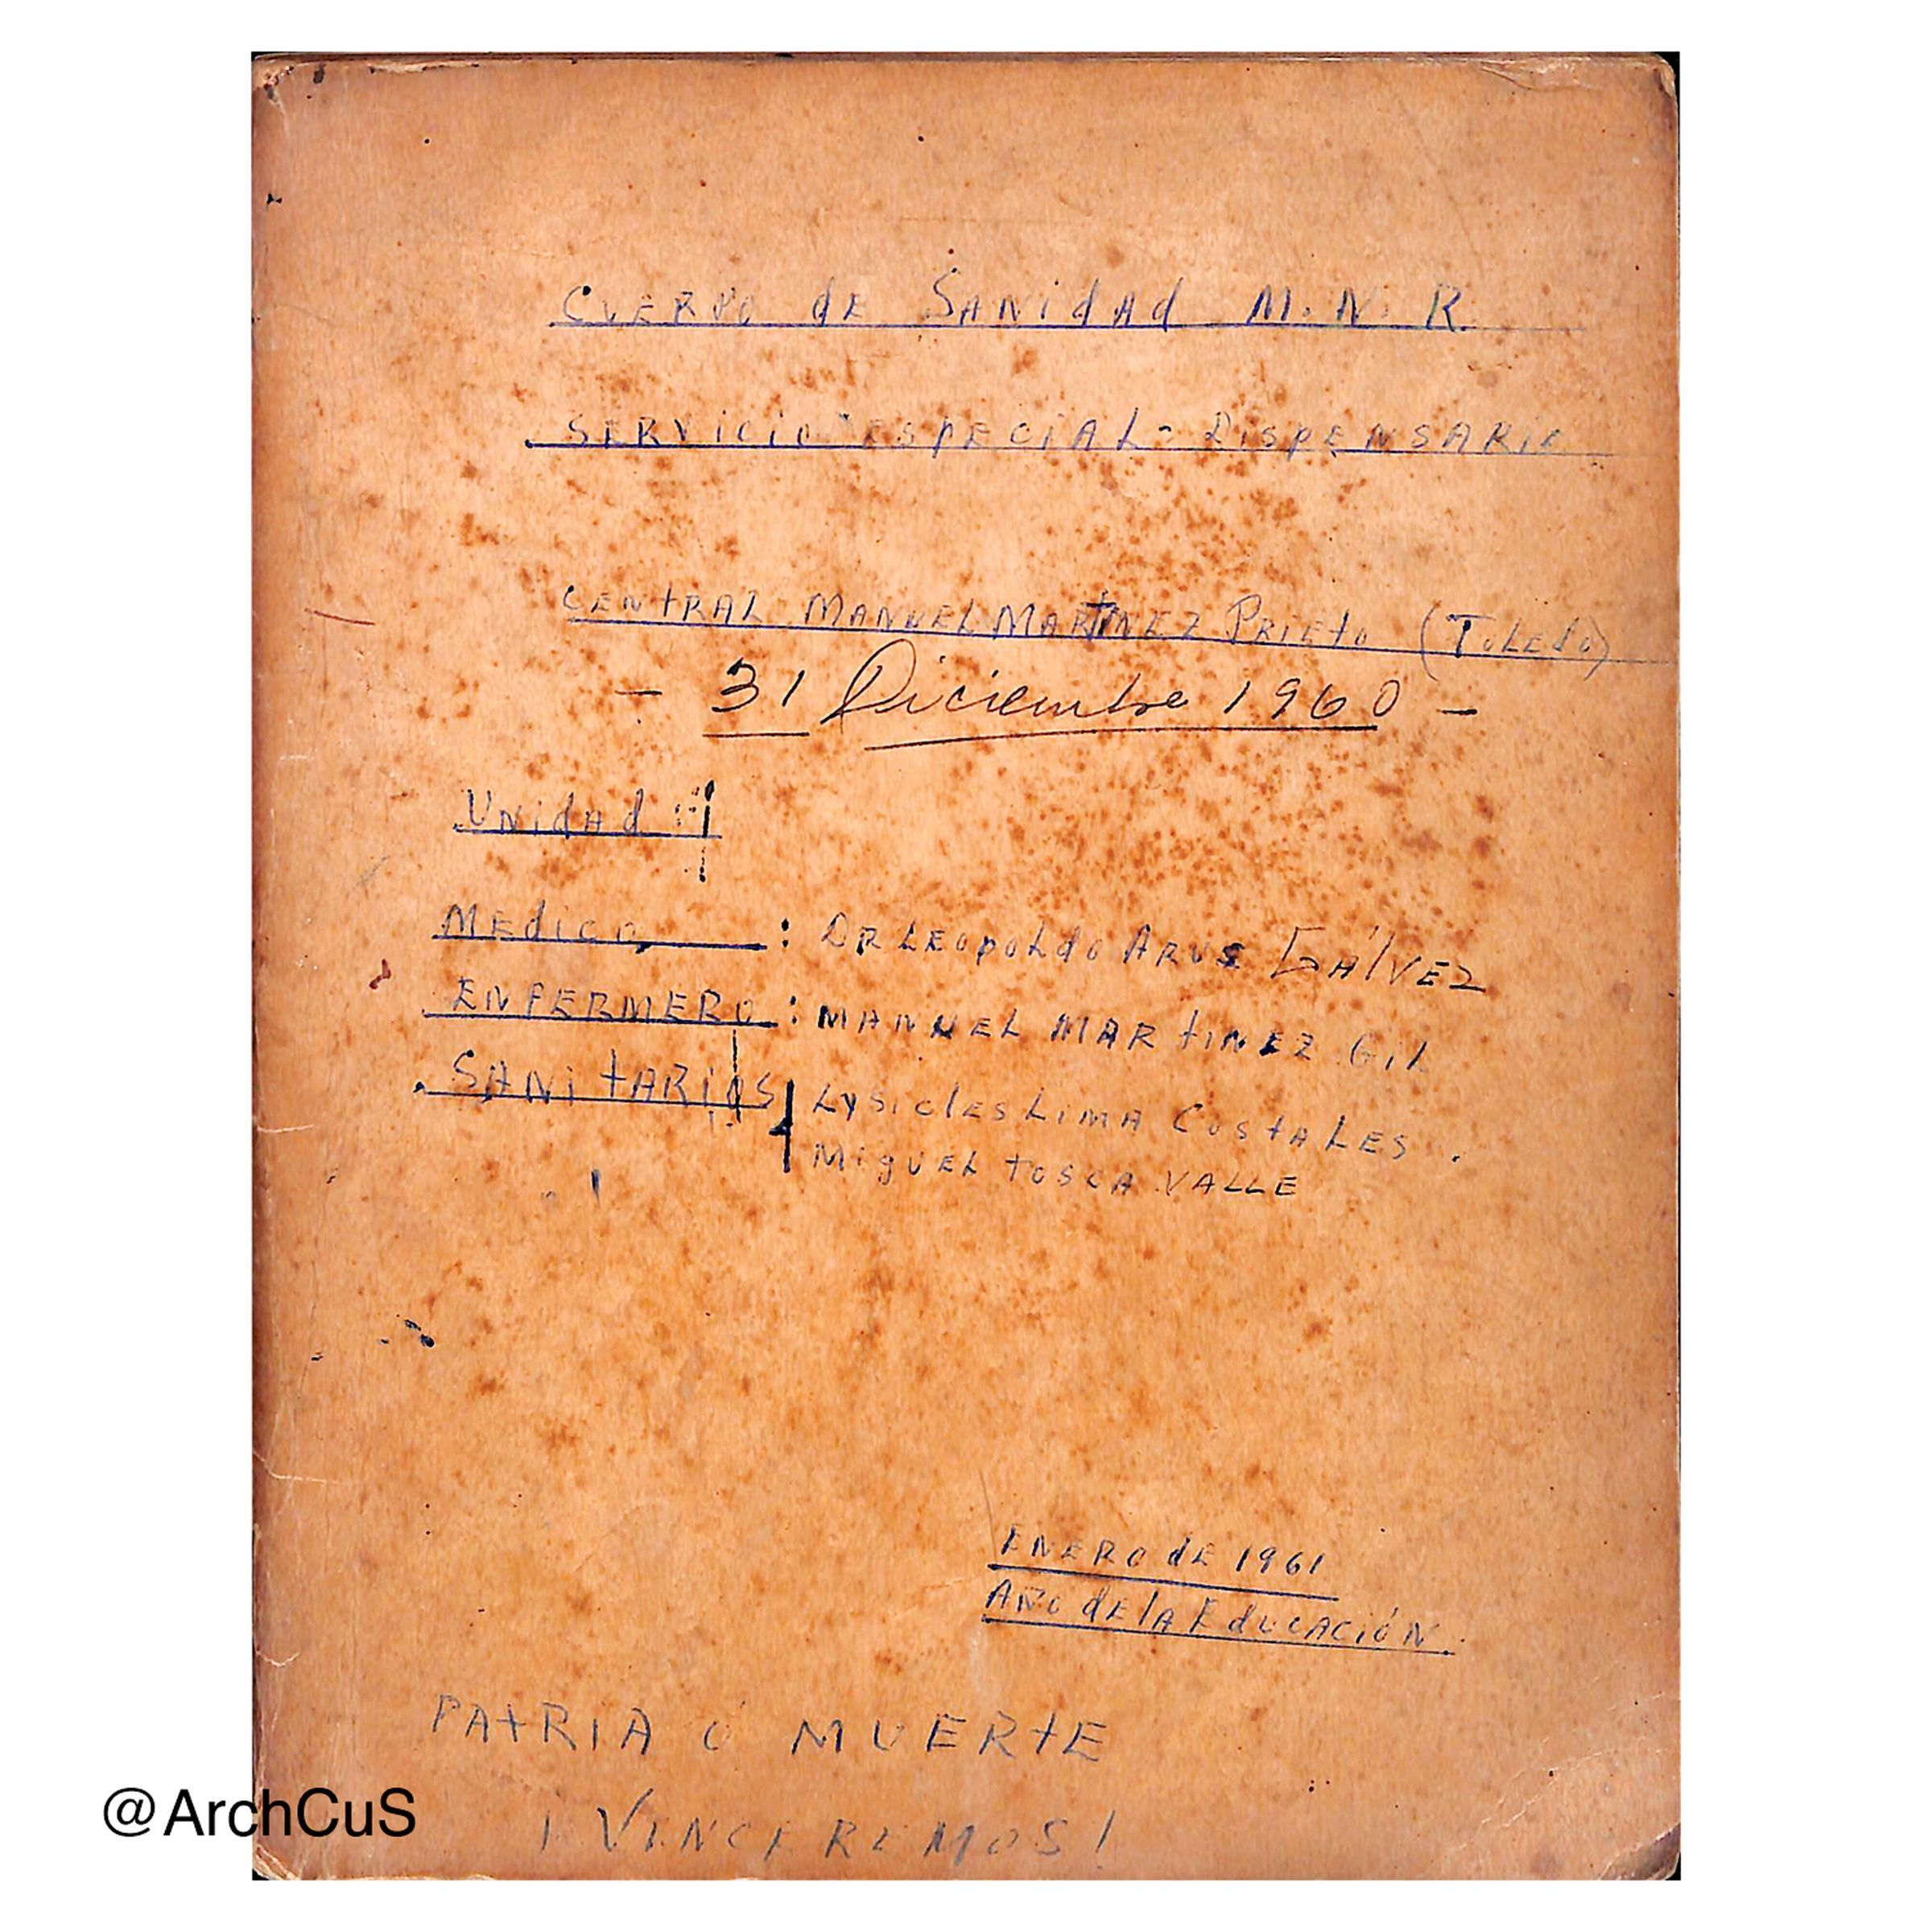 CUERPO dE SANidAd M. N. R.
SERViciO ESPECiAL - DisPENSARiO
CENtRAL MANUEL MARTiNEZ PRiEtO (TOLEdO)
- 31 Diciembre 1960 -
UNidAd : 1
MEdico : DR LEOpOLdO ARUS GÁLVEZ
ENFERMERO : MANUEL MARtiNEZ GiL
SANitARiOS LysiclES LiMA COStALES.
MigUEL tOSCA VALLE
ENERO dE 1961
AÑO dE lA EdUCACióN.
PAtRiA Ó MUERtE
¡ VENCEREMOS !
@ArchCuS